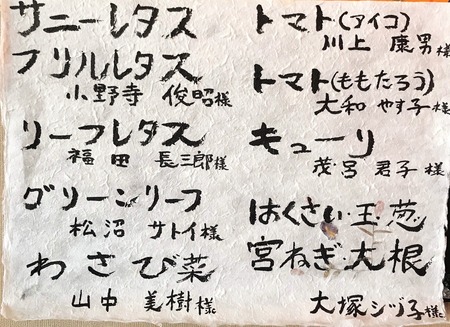 サニーレタス
フリルレタス
小野寺 俊昭様
リーフレタス
福田 長三郎様
グリーンリーフ
松沼 サトイ様
わさび菜
山中 美樹様
トマト(アイコ)
川上 康男様
トマト(ももたろう)
大和 やす子様
キューリ
茂呂 君子様
はくさい・玉葱
宮ねぎ・大根
大塚シヅ子様